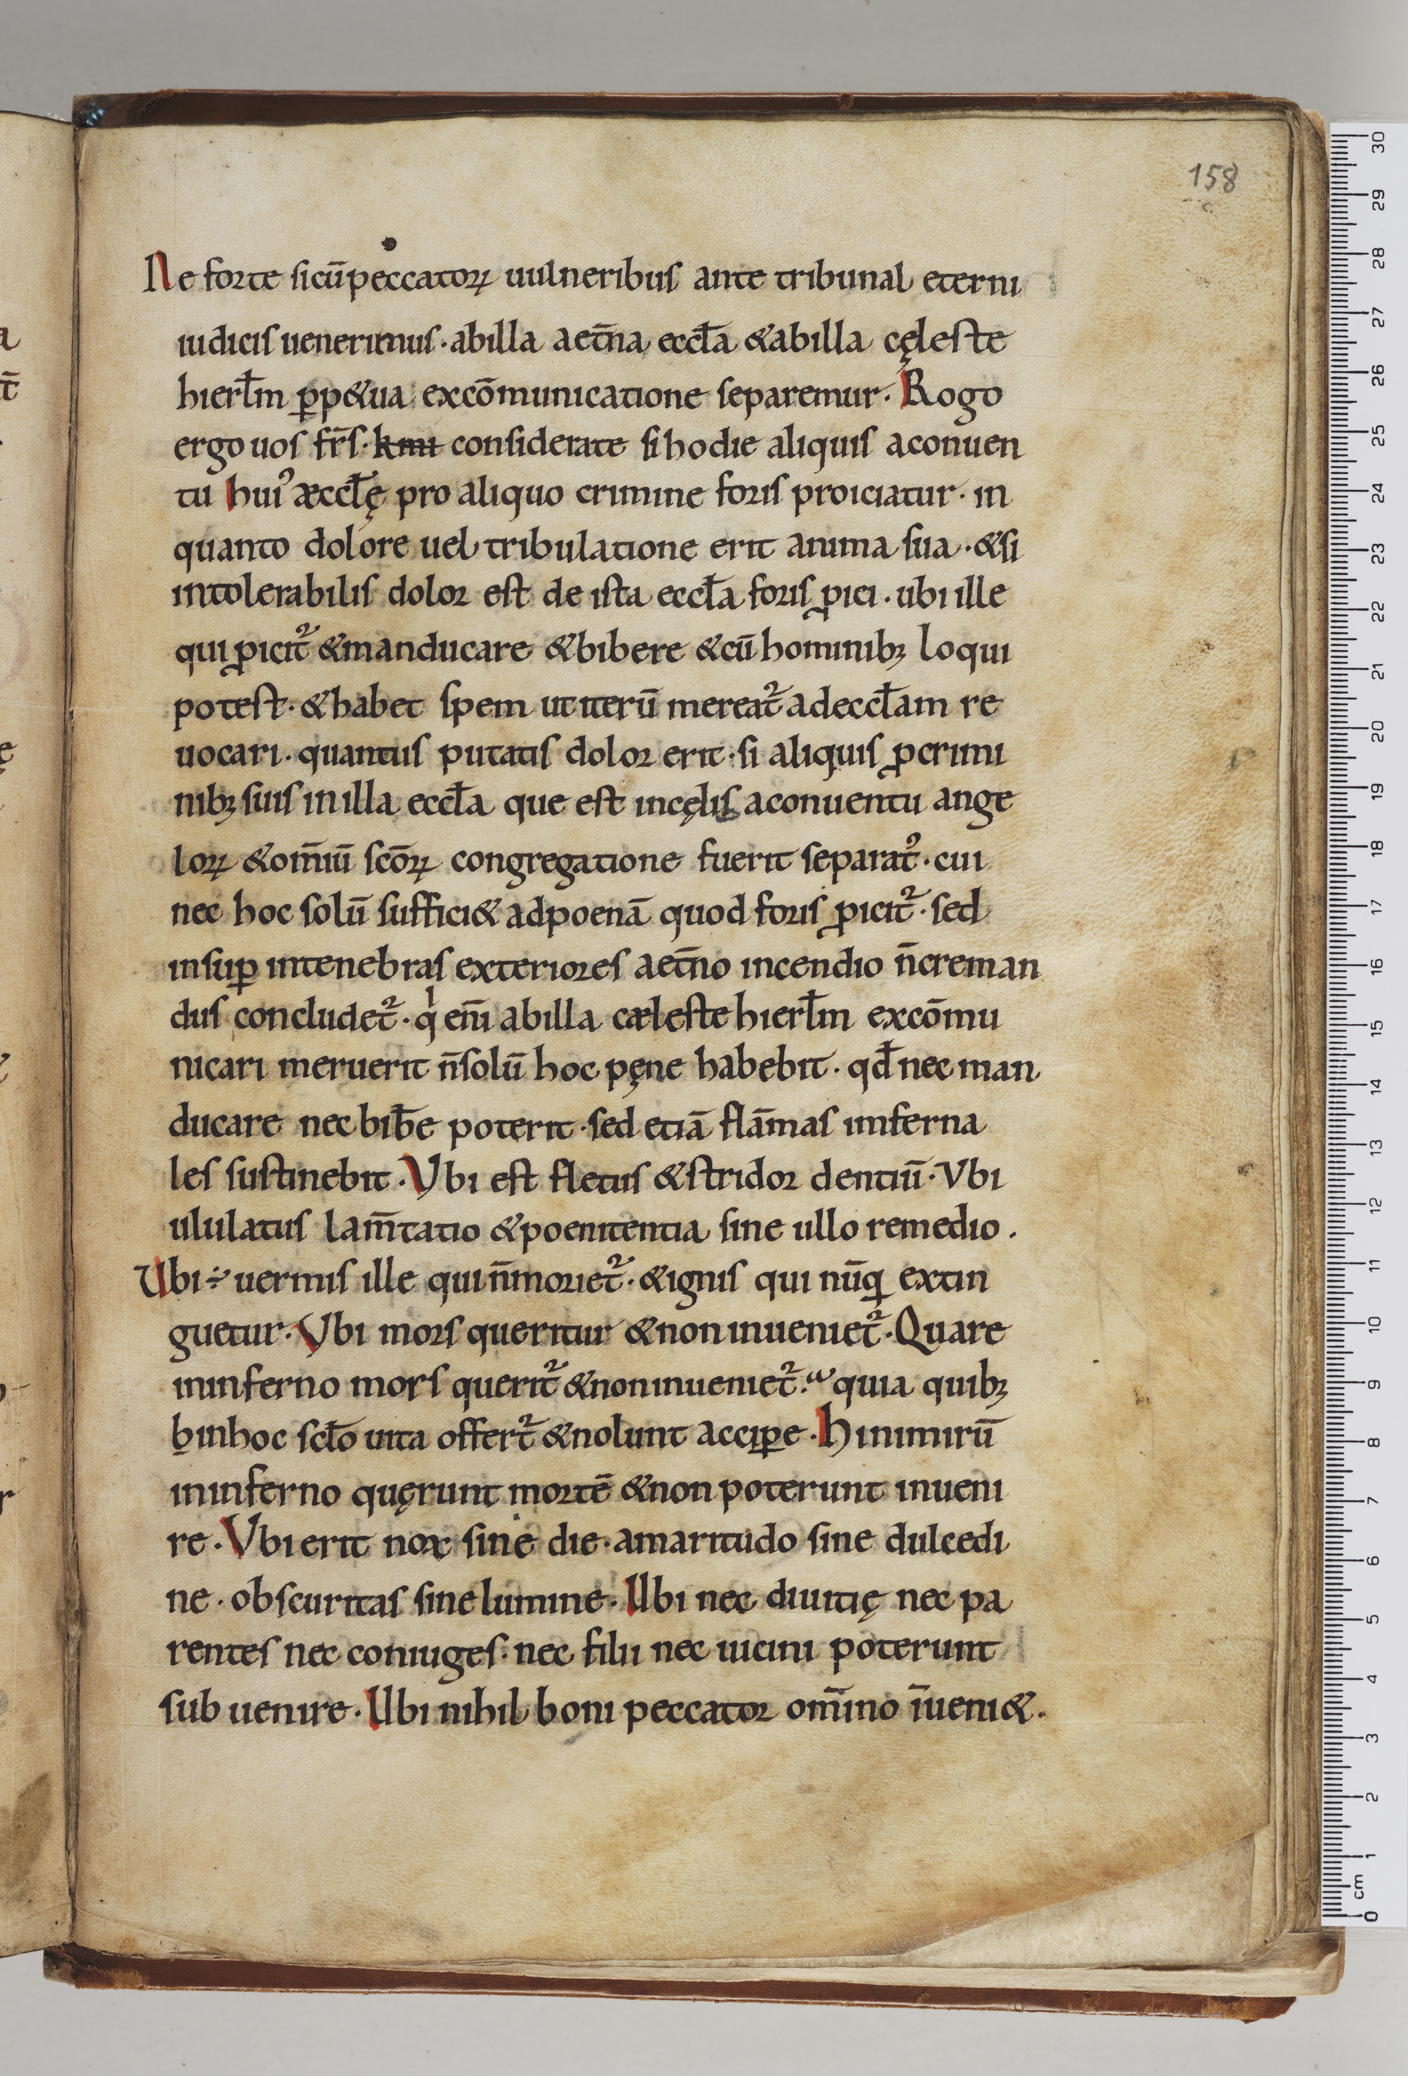 158
Ne forte si cū peccatoꝝ uulneribus ante tribunal eterni
iudicis uenerimus · ab illa aet̄na eccl̄a & ab illa cęleste
hierl̄m ꝑp&ua excōmunicatione separemur · Rogo
ergo uos fr̄s · kmi considerate si hodie aliquis a conuen
tu hui᾽ æccl̄ę pro aliquo crimine foris proiciatur · in
quanto dolore uel tribulatione erit anima sua · & si
intolerabilis dolor est de ista eccl̄a foris ꝓici · ubi ille
qui ꝓicit᷑ & manducare & bibere & cū hominibꝫ loqui
potest · & habet spem ut iterū mereat᷑ ad eccl̄am re
uocari · quantus putatis dolor erit · si aliquis ꝓ crimi
nibꝫ suis in illa eccl̄a que est in cęlis a conuentu ange
loꝝ & om̄iū scōꝝ congregatione fuerit separat᾽ · cui
nec hoc solū suffici& ad poenā quod foris ꝓicit᷑ · sed
insuꝑ in tenebras exteriores aet̄no incendio n̄ creman
dus concludet᷑ · qͥ eni̅ ab illa cæleste hierl̄m excōmu
nicari meruerit n̄ solū hoc pęne habebit · qd̄ nec man
ducare nec bib̄e poterit · sed etiā flām̄as imferna
les sustinebit · Vbi est fletus & stridor dentiū · Vbi
ululatus lam̄tatio & poenitentia sine ullo remedio ·
Ubi ÷ uermis ille qui n̄ moriet᷑ · & ignis qui nūꝗ extin
guetur · Vbi mors queritur & non inueniet᷑ · Quare
in inferno mors querit᷑ & non inueniet᷑ · quia quibꝫ
h̢ in hoc scl̄o uita offert᷑ & nolunt acciꝑe · Hi nimirū
in inferno quęrunt mortē & non poterunt inueni
re · Vbi erit nox sine die · amaritudo sine dulcedi
ne · obscuritas sine lumine · Ubi nec diuitię nec pa
rentes nec coniuges · nec filii nec uicini poterunt
sub uenire · Ubi nihil boni peccator om̄ino īueni& ·